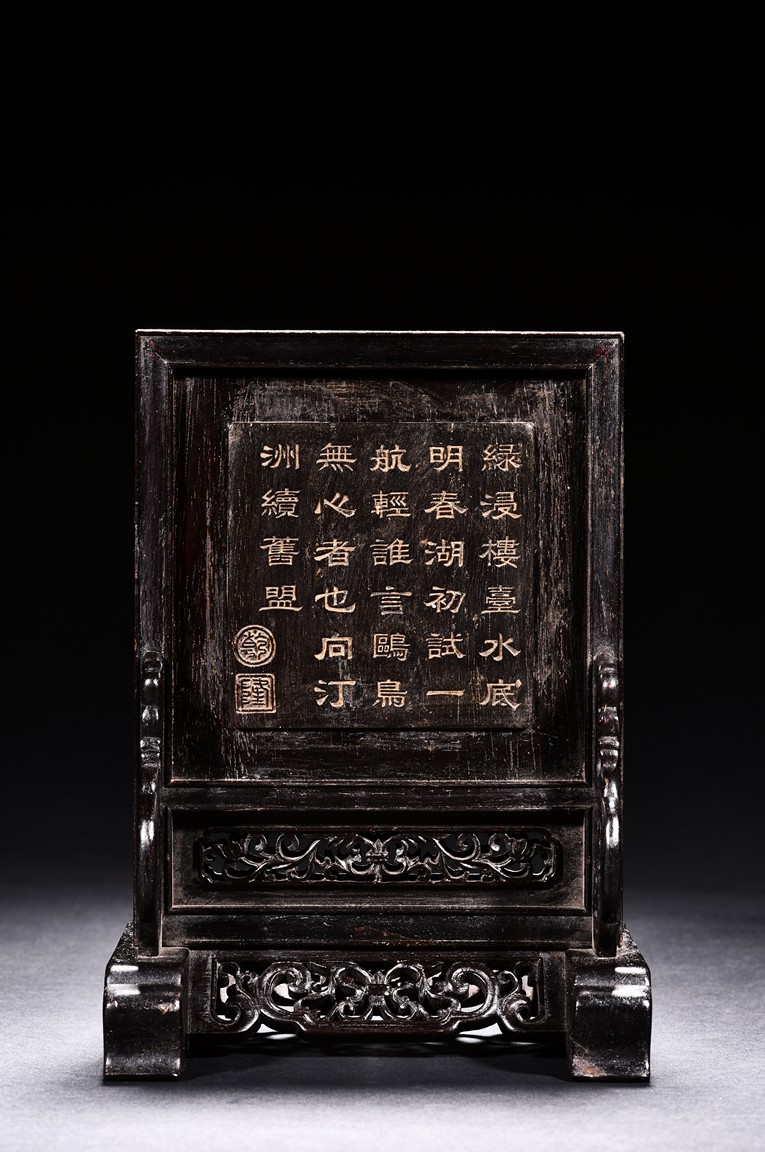 綠浸樓臺水底
明春湖初試一
航輕誰言鷗鳥
無心者也向汀
洲續舊盟
乾
隆